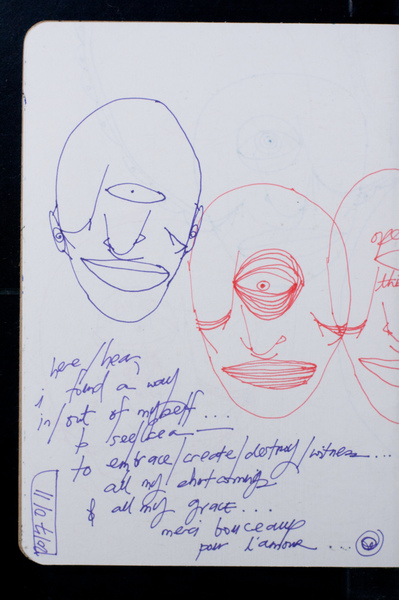 ope
th
here/hear,
i found a way
in/out of myself ...
to see/be a
to embrace/create/destroy/witness ...
all my shortcomings
& all my grace ...
merci bouceaup
pour l'amour ...